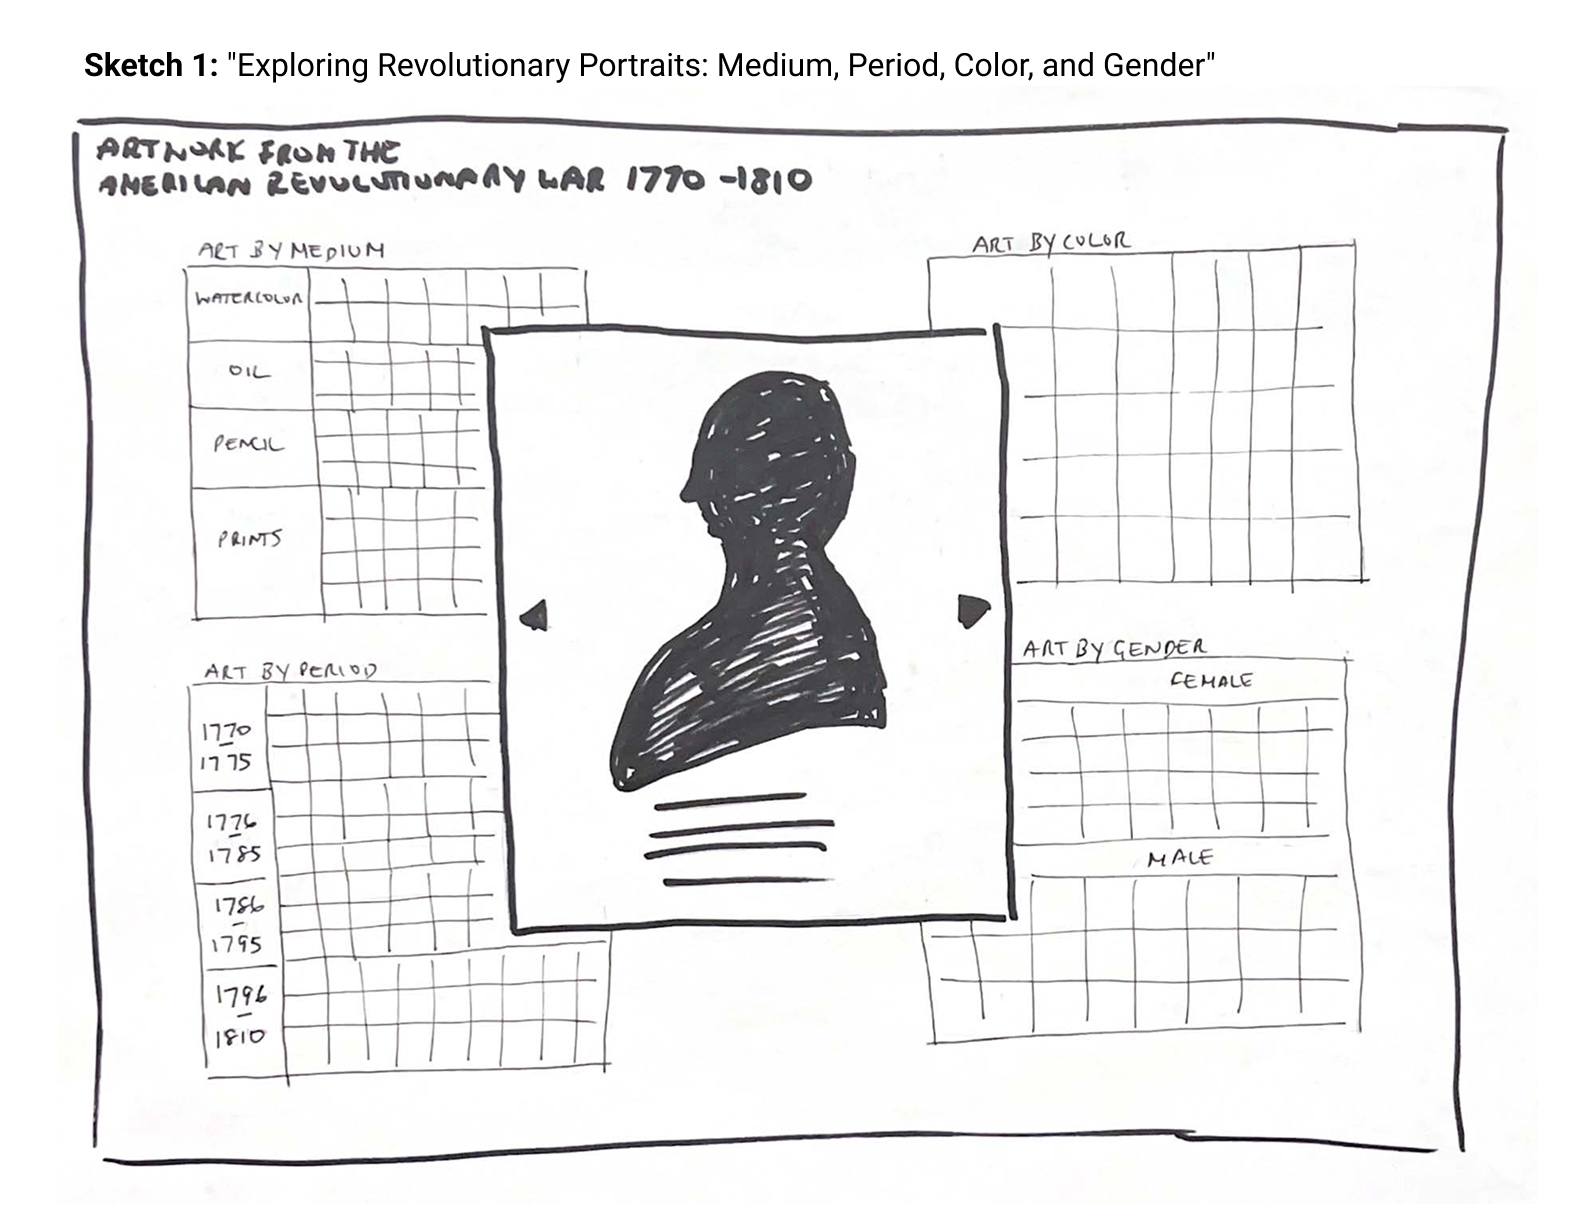 Sketch 1: "Exploring Revolutionary Portraits: Medium, Period, Color, and Gender"
ARTWORK FROM THE
AMERICAN REVOLUTIONARY WAR 1770 - 1810
ART BY MEDIUM
WATERCOLOR
OIL
PENCIL
PRINTS
ART BY PERIOD
1770
-
1775
1776
-
1785
1786
-
1795
1796
-
1810
ART BY COLOR
ART BY GENDER
FEMALE
MALE